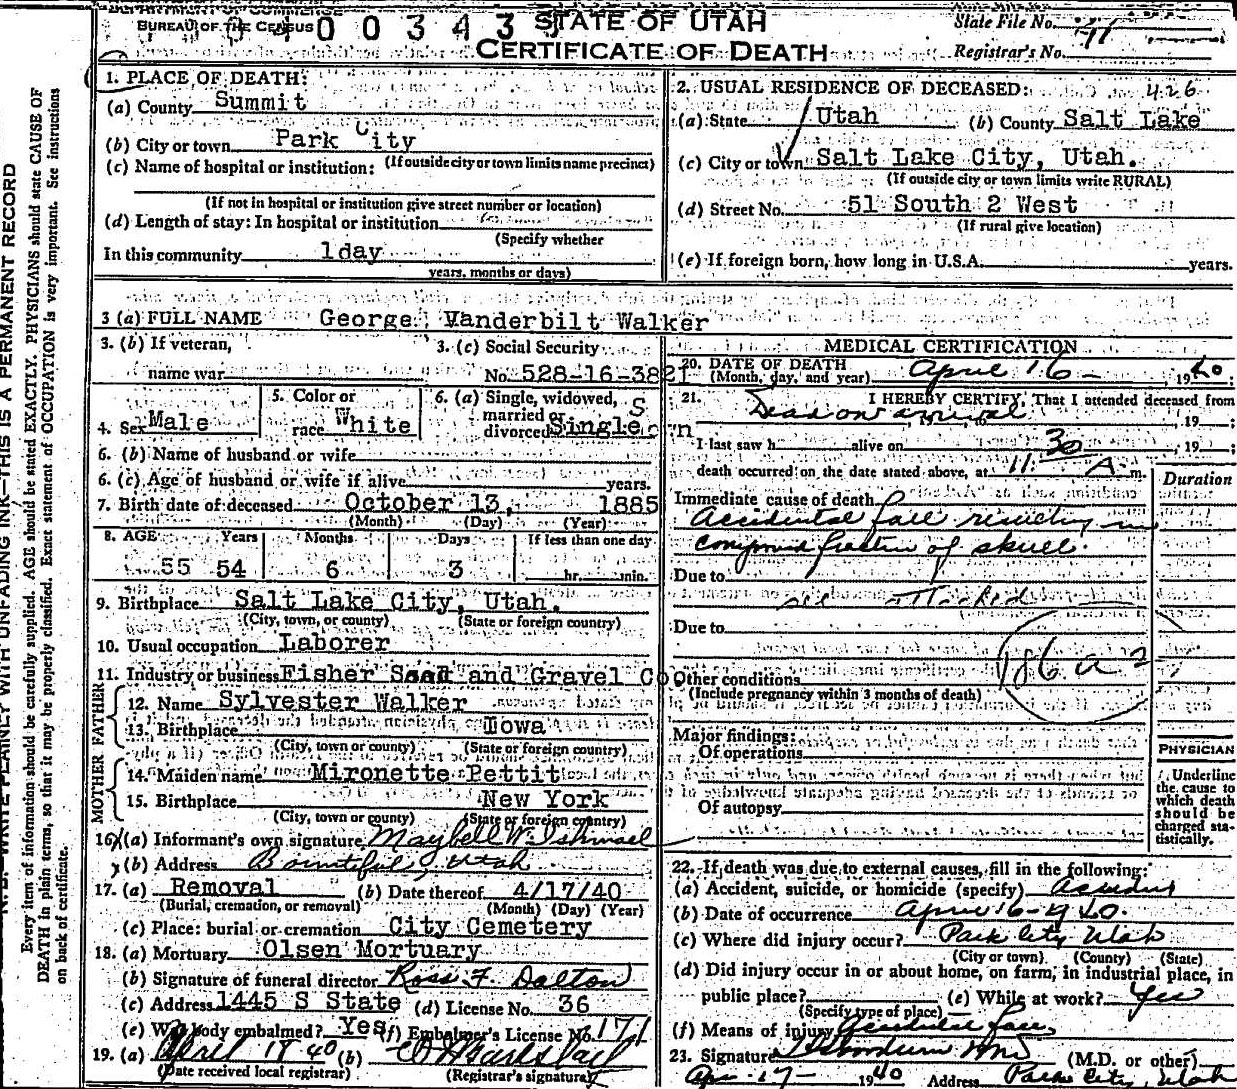 DEPARTMENT OF COMMERCE
BUREAU OF THE CENSUS
0 0 3 4 3
STATE OF UTAH
CERTIFICATE OF DEATH
State File No.
Registrar's No. 41
N. B. WRITE PLAINLY WITH UNFADING INK—THIS IS A PERMANENT RECORD
Every item of information should be carefully supplied. AGE should be stated EXACTLY. PHYSICIANS should state CAUSE OF
DEATH in plain terms, so that it may be properly classified. Exact statement of OCCUPATION is very important. See instructions
on back of certificate.
1. PLACE OF DEATH:
(a) County Summit
(b) City or town Park City
(If outside city or town limits name precinct)
(c) Name of hospital or institution:
(If not in hospital or institution give street number or location)
(d) Length of stay: In hospital or institution
(Specify whether
In this community 1day
years, months or days)
2. USUAL RESIDENCE OF DECEASED: 426
(a) State Utah (b) County Salt Lake
(c) City or town Salt Lake City, Utah.
(If outside city or town limits write RURAL)
(d) Street No. 51 South 2 West
(If rural give location)
(e) If foreign born, how long in U.S.A. years.
3 (a) FULL NAME George Vanderbilt Walker
3. (b) If veteran,
name war
3. (c) Social Security
No. 528-16-3821
4. Sex Male
5. Color or
race White
6. (a) Single, widowed, S
married or
divorced Single
6. (b) Name of husband or wife
6. (c) Age of husband or wife if alive years.
7. Birth date of deceased October 13, 1885
(Month) (Day) (Year)
8. AGE Years Months Days If less than one day
55 54 6 3 hr. min.
9. Birthplace Salt Lake City, Utah.
(City, town, or county) (State or foreign country)
10. Usual occupation Laborer
11. Industry or business Fisher Sand and Gravel Co
FATHER
12. Name Sylvester Walker
13. Birthplace Iowa
(City, town or county) (State or foreign country)
MOTHER
14. Maiden name Mironette Pettit
15. Birthplace New York
(City, town or county) (State or foreign country)
16. (a) Informant's own signature Maybell W. Ishmael
(b) Address Bountiful, Utah
17. (a) Removal (b) Date thereof 4/17/40
(Burial, cremation, or removal) (Month) (Day) (Year)
(c) Place: burial or cremation City Cemetery
18. (a) Mortuary Olsen Mortuary
(b) Signature of funeral director Ross F. Dalton
(c) Address 1445 S State (d) License No. 36
(e) Was body embalmed? Yes (f) Embalmer's License No. 171
19. (a) April 18 40 (b)
(Date received local registrar) (Registrar's signature)
MEDICAL CERTIFICATION
20. DATE OF DEATH
(Month, day, and year) April 16 - 1940
21. I HEREBY CERTIFY, That I attended deceased from
Dead on arrival , 19 ;
I last saw h alive on , 19 ;
death occurred on the date stated above, at 11:30 A m.
Duration
Immediate cause of death
Accidental fall resulting in
compound fracture of skull.
Due to
see attached
Due to
186 a 2
Other conditions
(Include pregnancy within 3 months of death)
Major findings:
Of operations
Of autopsy
PHYSICIAN
Underline
the cause to
which death
should be
charged sta-
tistically.
22. If death was due to external causes, fill in the following:
(a) Accident, suicide, or homicide (specify) Accident
(b) Date of occurrence April 16 - 1940.
(c) Where did injury occur? Park City Utah
(City or town) (County) (State)
(d) Did injury occur in or about home, on farm, in industrial place, in
public place? (e) While at work? Yes
(Specify type of place)
(f) Means of injury Accidental fall
23. Signature (M.D. or other)
Apr - 17 - 1940 Address Park City, Utah